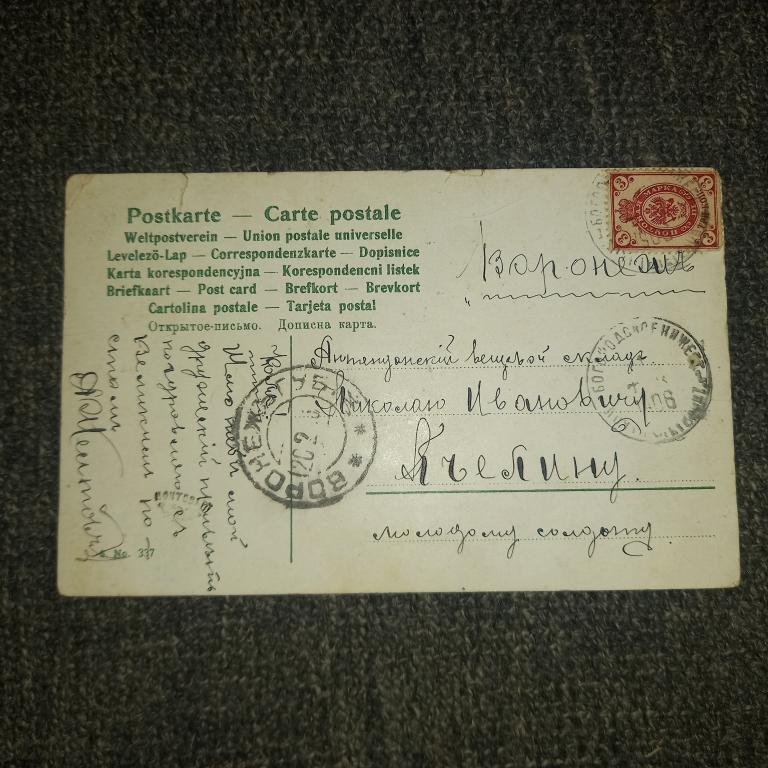 Postkarte — Carte postale
Weltpostverein — Union postale universelle
Levelezö-Lap — Correspondenzkarte — Dopisnice
Karta korespondencyjna — Korespondencni listek
Briefkaart — Post card — Brefkort — Brevkort
Cartolina postale — Tarjeta postal
Открытое-письмо. Дописна карта.
3 3
Воронежъ
вещевой складъ
Николаю Ивановичу
Пчелину.
молодому солдату
Коля!
Шлю тебѣ мой
дружескій привѣтъ
поздравляю съ
Великимъ по-
стомъ
ВОРОНЕЖЪ ГУБ.
No. 337